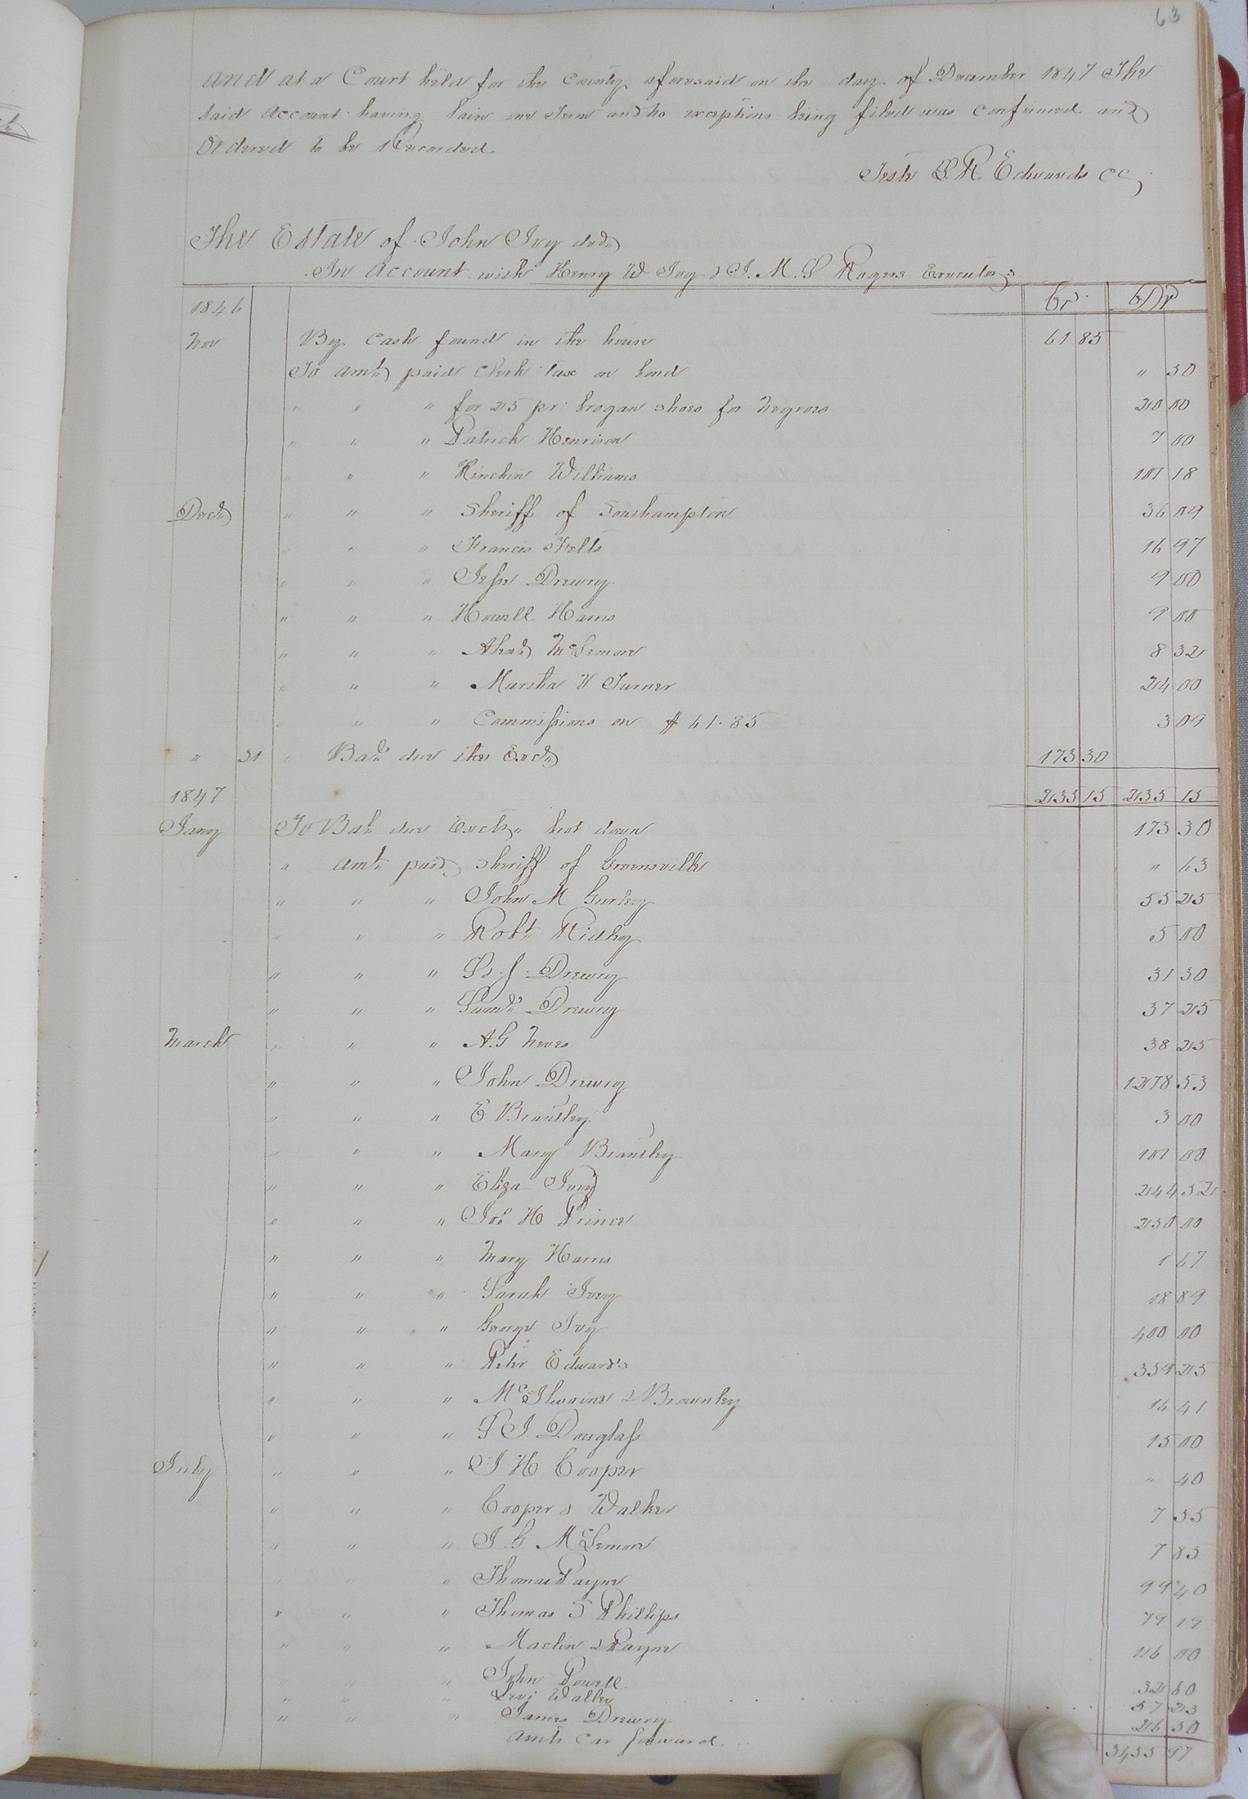 63
and at a Court held for the County aforesaid on the day of December 1847 The
said Account having lain one Term and no exceptions being filed was confirmed and
Ordered to be Recorded
Teste L. R. Edwards CC
The Estate of John Ivy decd
In Account with Henry W Ivy & J. M. S Rogers Executors
1846 Cr Dr
Nov By Cash found in the house 61 85
To amt paid Clerk tax on bond " 50
" " " for 25 pr brogan shoes for negroes 20 00
" " " Patrick Harrison 7 00
" " " Kinchin Williams 101 18
Decr " " " Sheriff of Southampton 36 09
" " " Francis Felts 16 97
" " " Jesse Drewry 9 00
" " " Howell Harris 9 00
" " " McLemore 8 32
" " " Martha W Turner 24 00
" " " Commissions on $61.85 3 09
" 31 " Bal due the Exrs 173 30
1847 235 15 235 15
Jany To Bal due Exrs bot down 173 30
" amt paid Sheriff of Greensville " 63
" " " John M Gurley 55 25
" " " Robt Ridley 5 00
" " " Drewry 31 30
" " " Saml Drewry 37 25
March " " " A. G 38 25
" " " John Drewry 1278 53
" " " E Brantley 3 00
" " " Mary Brantley 101 00
" " " Eliza Ivy 244 52
" " " Jos H Prince 230 00
" " " Mary Harris 1 67
" " " Sarah Ivey 18 89
" " " George Ivy 400 00
" " " Peter Edwards 359 25
" " " McIlwaine & Brownley 16 41
" " " Douglass 15 00
July " " " J H Cooper " 40
" " " Cooper & Walker 7 55
" " " J. G McLemore 7 83
" " " Thomas Payne 99 40
" " " Thomas S Phillips 79 19
" " " Maclin & Payne 26 00
" " " John Powell 32 60
" " " Levi Walker 57 23
" " " James Drewry 26 50
amts car forward 3455 97